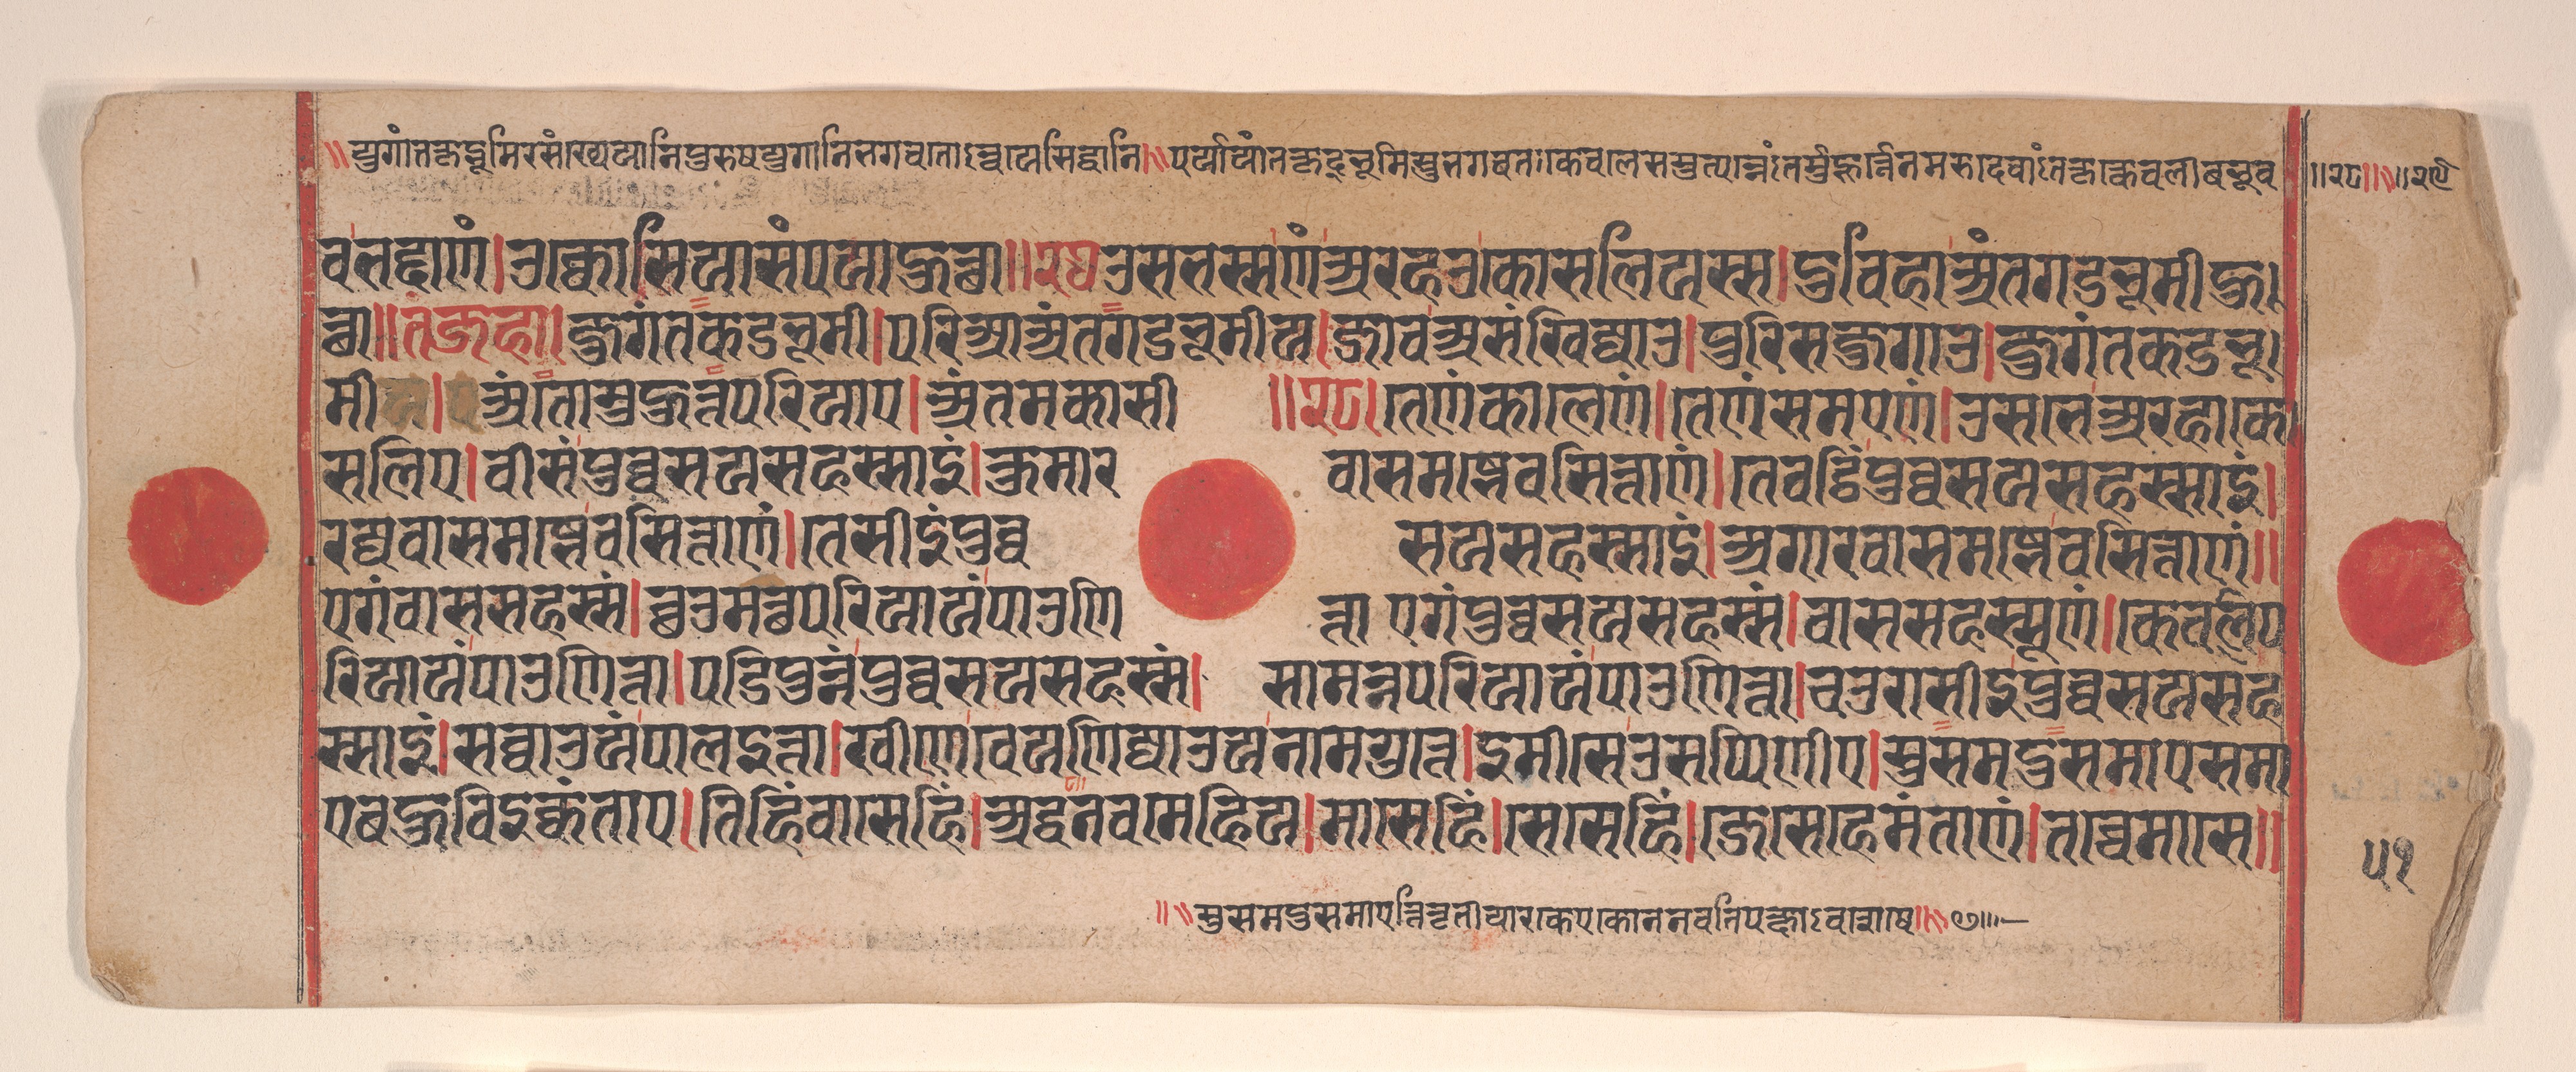 ॥युगांतकृद्भूमिरसंख्येयानिपुरुषयुगानिभगवतोऽन्वयेसिद्धानि॥पर्यायांतकृद्भूमिस्तुभगवतःकेवलेसमुत्पन्नेंऽतर्मुहूर्त्तेनमरुदेवांऽतकृत्केवलीबभूव ॥२८॥॥२९
वलद्दाणं।उक्कोसियासंपयाहुत्था॥२७उसभस्सणंअरहउकोसलियस्स।दुविहाअंतगडभूमीहु।
त्था॥तंजहा।जुगंतकडभूमी।परिआअंतगडभूमीय।जावअसंखिज्जाउ।पुरिसजुगाउ।जुगंतकडभू।
मीय।एअंतोमुहुत्तपरियाए।अंतमकासी ॥२८।तेणंकालेणं।तेणंसमएणं।उसभेअरहाको
सलिए।वीसंपुव्वसयसहस्साइं।कुमार वासमज्झेवसित्ताणं।तेवट्ठिंपुव्वसयसहस्साइं।
रज्जवासमज्झेवसित्ताणं।तेसीइंपुव्व सयसहस्साइं।अगारवासमज्झेवसित्ताणं॥
एगंवाससहस्सं।छउमत्थपरियायंपाउणि त्ता एगंपुव्वसयसहस्सं।वाससहस्सूणं।केवलिप
रियायंपाउणित्ता।पडिपुन्नंपुव्वसयसहस्सं। सामन्नपरियायंपाउणित्ता।चउरासीइंपुव्वसयसह
स्साइं।सव्वाउयंपालइत्ता।खीणेवेयणिज्जाउयनामगुत्ते।इमीसेउसप्पिणीए।सुसमदुसमाएसमा
एबहुविइक्कंताए।तिहिंवासेहिं।अद्धनवमेहिय।मासेहिं।सेसेहिं।जेसेहेमंताणं।तच्चेमासे॥
५१
॥सुसमदुसमाएत्तितृतीयारकेएकोननवतिपक्षेऽवशेषे॥७॥